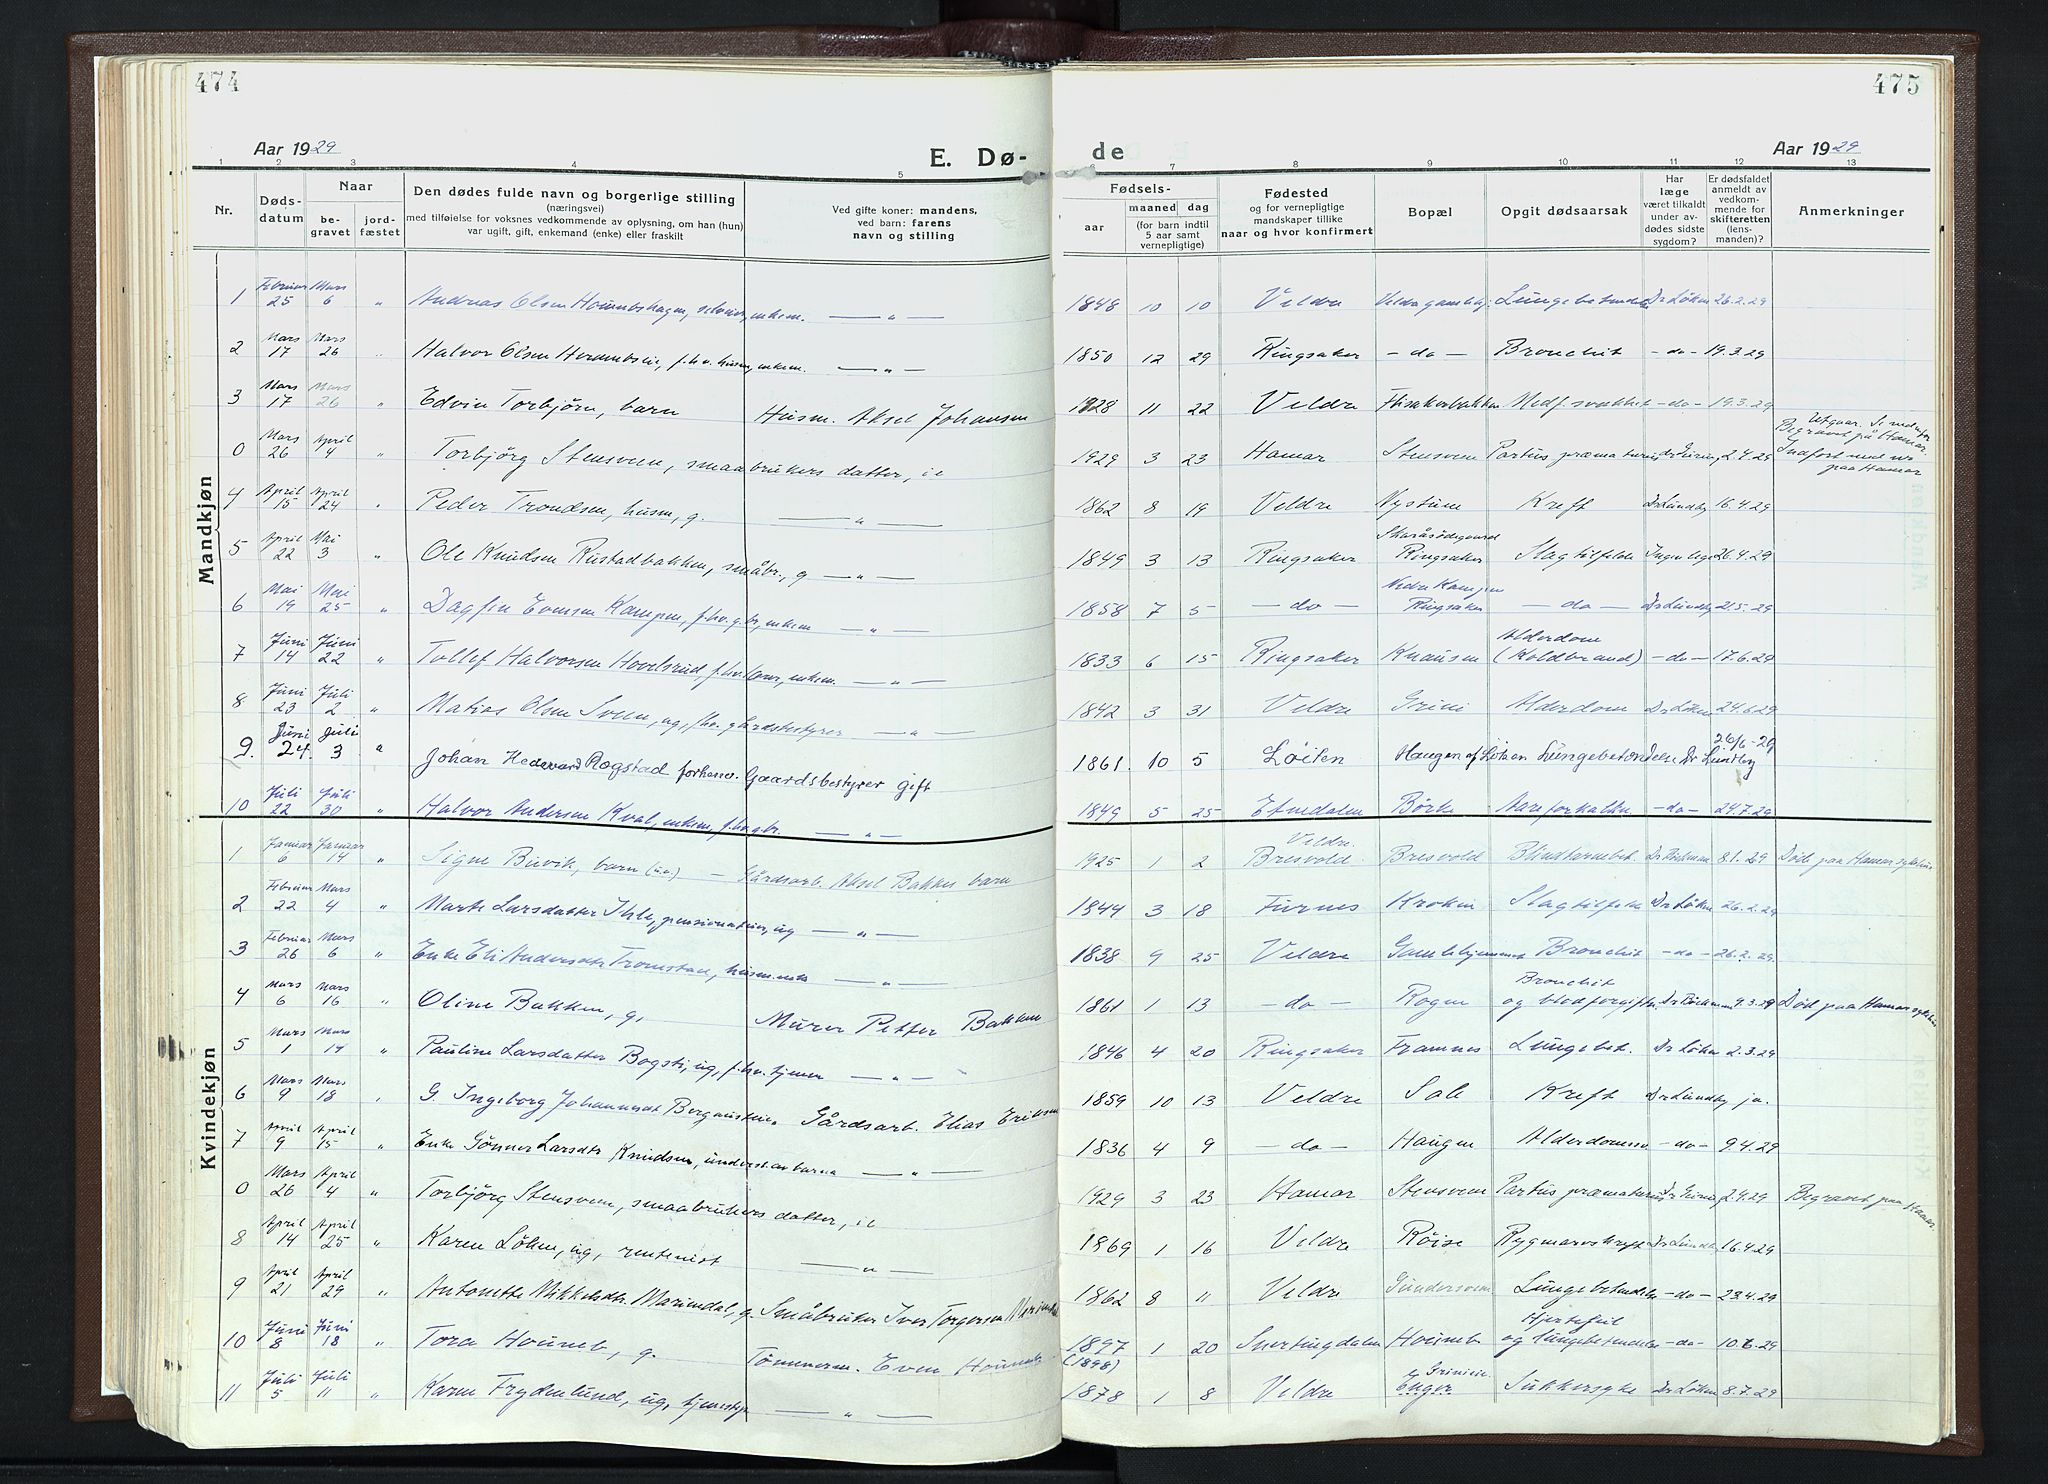 474
475
Aar 1929
E. Dø-
de
Aar 1929
1 2 3 4 5 6 7 8 9 10 11 12 13
Nr.
Døds-
datum
Naar
be-
gravet
jord-
fæstet
Den dødes fulde navn og borgerlige stilling
(næringsvei)
med tilføielse for voksnes vedkommende av oplysning, om han (hun)
var ugift, gift, enkemand (enke) eller fraskilt
Ved gifte koner: mandens,
ved barn: farens
navn og stilling
Fødsels-
aar
maaned dag
(for barn indtil
5 aar samt
vernepligtige)
Fødested
og for vernepligtige
mandskaper tillike
naar og hvor konfirmert
Bopæl
Opgit dødsaarsak
Har
læge
været tilkaldt
under av-
dødes sidste
sygdom?
Er dødsfaldet
anmeldt av
vedkom-
mende for
skifteretten
(lens-
manden)?
Anmerkninger
Mandkjøn
Februar Mars
1 25 6 " Andreas Olsen selveier, enkem. — " — 1848 10 10 Veldre Dr Løken 26.2.29
Mars Mars
2 17 26 " Halvor Olsen f.hv. husm, enkem. — " — 1850 12 29 Ringsaker — do — Bronchit — do — 19.3.29
Mars Mars
3 17 26 " Edvin Torbjørn, barn Husm. Aksel Johansen 1928 11 22 Veldre Flisakerbakken Medf. svakhet — do — 19.3.29
Mars April
0 26 4 " Torbjørg Stensveen, smaabrukers datter, 1929 3 23 Hamar Stensveen Partus præmaturus 2.4.29 Utgaar. Se nedenfor
Begravet på Hamar.
Indført med nr
paa Hamar
April April
4 15 24 " Peder Trondsen, husm, g. — " — 1862 8 19 Veldre Nystuen Kreft Dr Lundby 16.4.29
April Mai
5 22 3 " Ole Knudsen Rustadbakken, småbr., g — " — 1849 3 13 Ringsaker Ringsaker Slagtilfelde Ingen læge 26.4.29
Mai Mai
6 19 25 " Dagfin Evensen Kampen, f.hv. g.br, enkem — " — 1858 7 5 — do — Nedre Kampen
Ringsaker — do — Dr Lundby 21.5.29
Juni Juni
7 14 22 " Tollef Halvorsen Hovelsrud, f.hv. enkem. — " — 1833 6 15 Ringsaker Knausen Alderdom
(Koldbrand) — do — 17.6.29
Juni Juli
8 23 2 " Matias Olsen Sveen, ug, f.hv. gårdsbestyrer — " — 1842 3 31 Veldre Grini Alderdom Dr Løken 24.6.29
Juni Juli
9. 24. 3 " Johan Hedevard Rogstad forhenv. Gaardsbestyrer gift 1861. 10 5 Løiten Haugen af Lungebetændelse Dr Lundby 26/6-29
Juli Juli
10 22 30 " Halvor Andersen Kval, enkem, f.hv. g.br. — " — 1849 5 25 Etnedalen Børke Aareforkalkn. — do — 24.7.29
Kvindekjøn
Januar Januar
1 6 14 " Signe Buvik, barn (u.e.) — Gårdsarb. Aksel Bakkes barn 1925 1 2 Veldre.
Bresvold Bresvold Blindtarmbet. 8.1.29 Død paa Hamar sykehus
Februar Mars
2 22 4 " Marte Larsdatter Ihle, ug — " — 1844 3 18 Furnes Kroken Slagtilfelde Dr Løken 26.2.29
Februar Mars
3 26 6 " Enke Eli Andersdtr Tromstad, husm.enke — " — 1838 9 25 Veldre Gamlehjemmet Bronchit — do — 26.2.29
Mars Mars
4 6 16 " Oline Bakken, g, Murer Petter Bakken 1861 1 13 — do — Rogen Bronchit
og blodforgiftn. 9.3.29 Død paa Hamar sykehus
Mars Mars
5 1 14 " Pauline Larsdatter Bogsti, ug, f.hv. tjener — " — 1846 4 20 Ringsaker Framnes Lungebet. Dr Løken 2.3.29
Mars Mars
6 9 18 " G. Ingeborg Johannesdt Gårdsarb. Elias Eriksen 1859 10 13 Veldre Sole Kreft Dr Lundby ja.
April April
7 9 15 " Enke Gønner Larsdtr Knudsen, — " — 1836 4 9 — do — Haugen — do — 9.4.29
Mars April
0 26 4 " Torbjørg Stensveen, smaabrukers datter, 1929 3 23 Hamar Stensveen Partus præmaturus 2.4.29 Begravet paa Hamar.
April April
8 14 25 " Karen Løken, ug, rentenist — " — 1869 1 16 Veldre Røise Rygmarvskreft Dr Lundby 16.4.29
April April
9 21 29 " Antonette Mikkelsdtr. Mariendal, g. Småbruker Iver Torgersen 1862 8 11 Veldre Gundersveen Lungebetændelse — do — 23.4.29
Juni Juni
10 8 18 " Tora Houmb, g. Tømmerm. Even Houmb 1897
(1898) 1 20 Snertingdalen Houmb Hjertefeil
og lungebetændelse — do — 10.6.29
Juli Juli
11 5 11 " Karen Frydenlund, ug, — " — 1878 1 8 Veldre Enger Sukkersyke Dr Løken 8.7.29